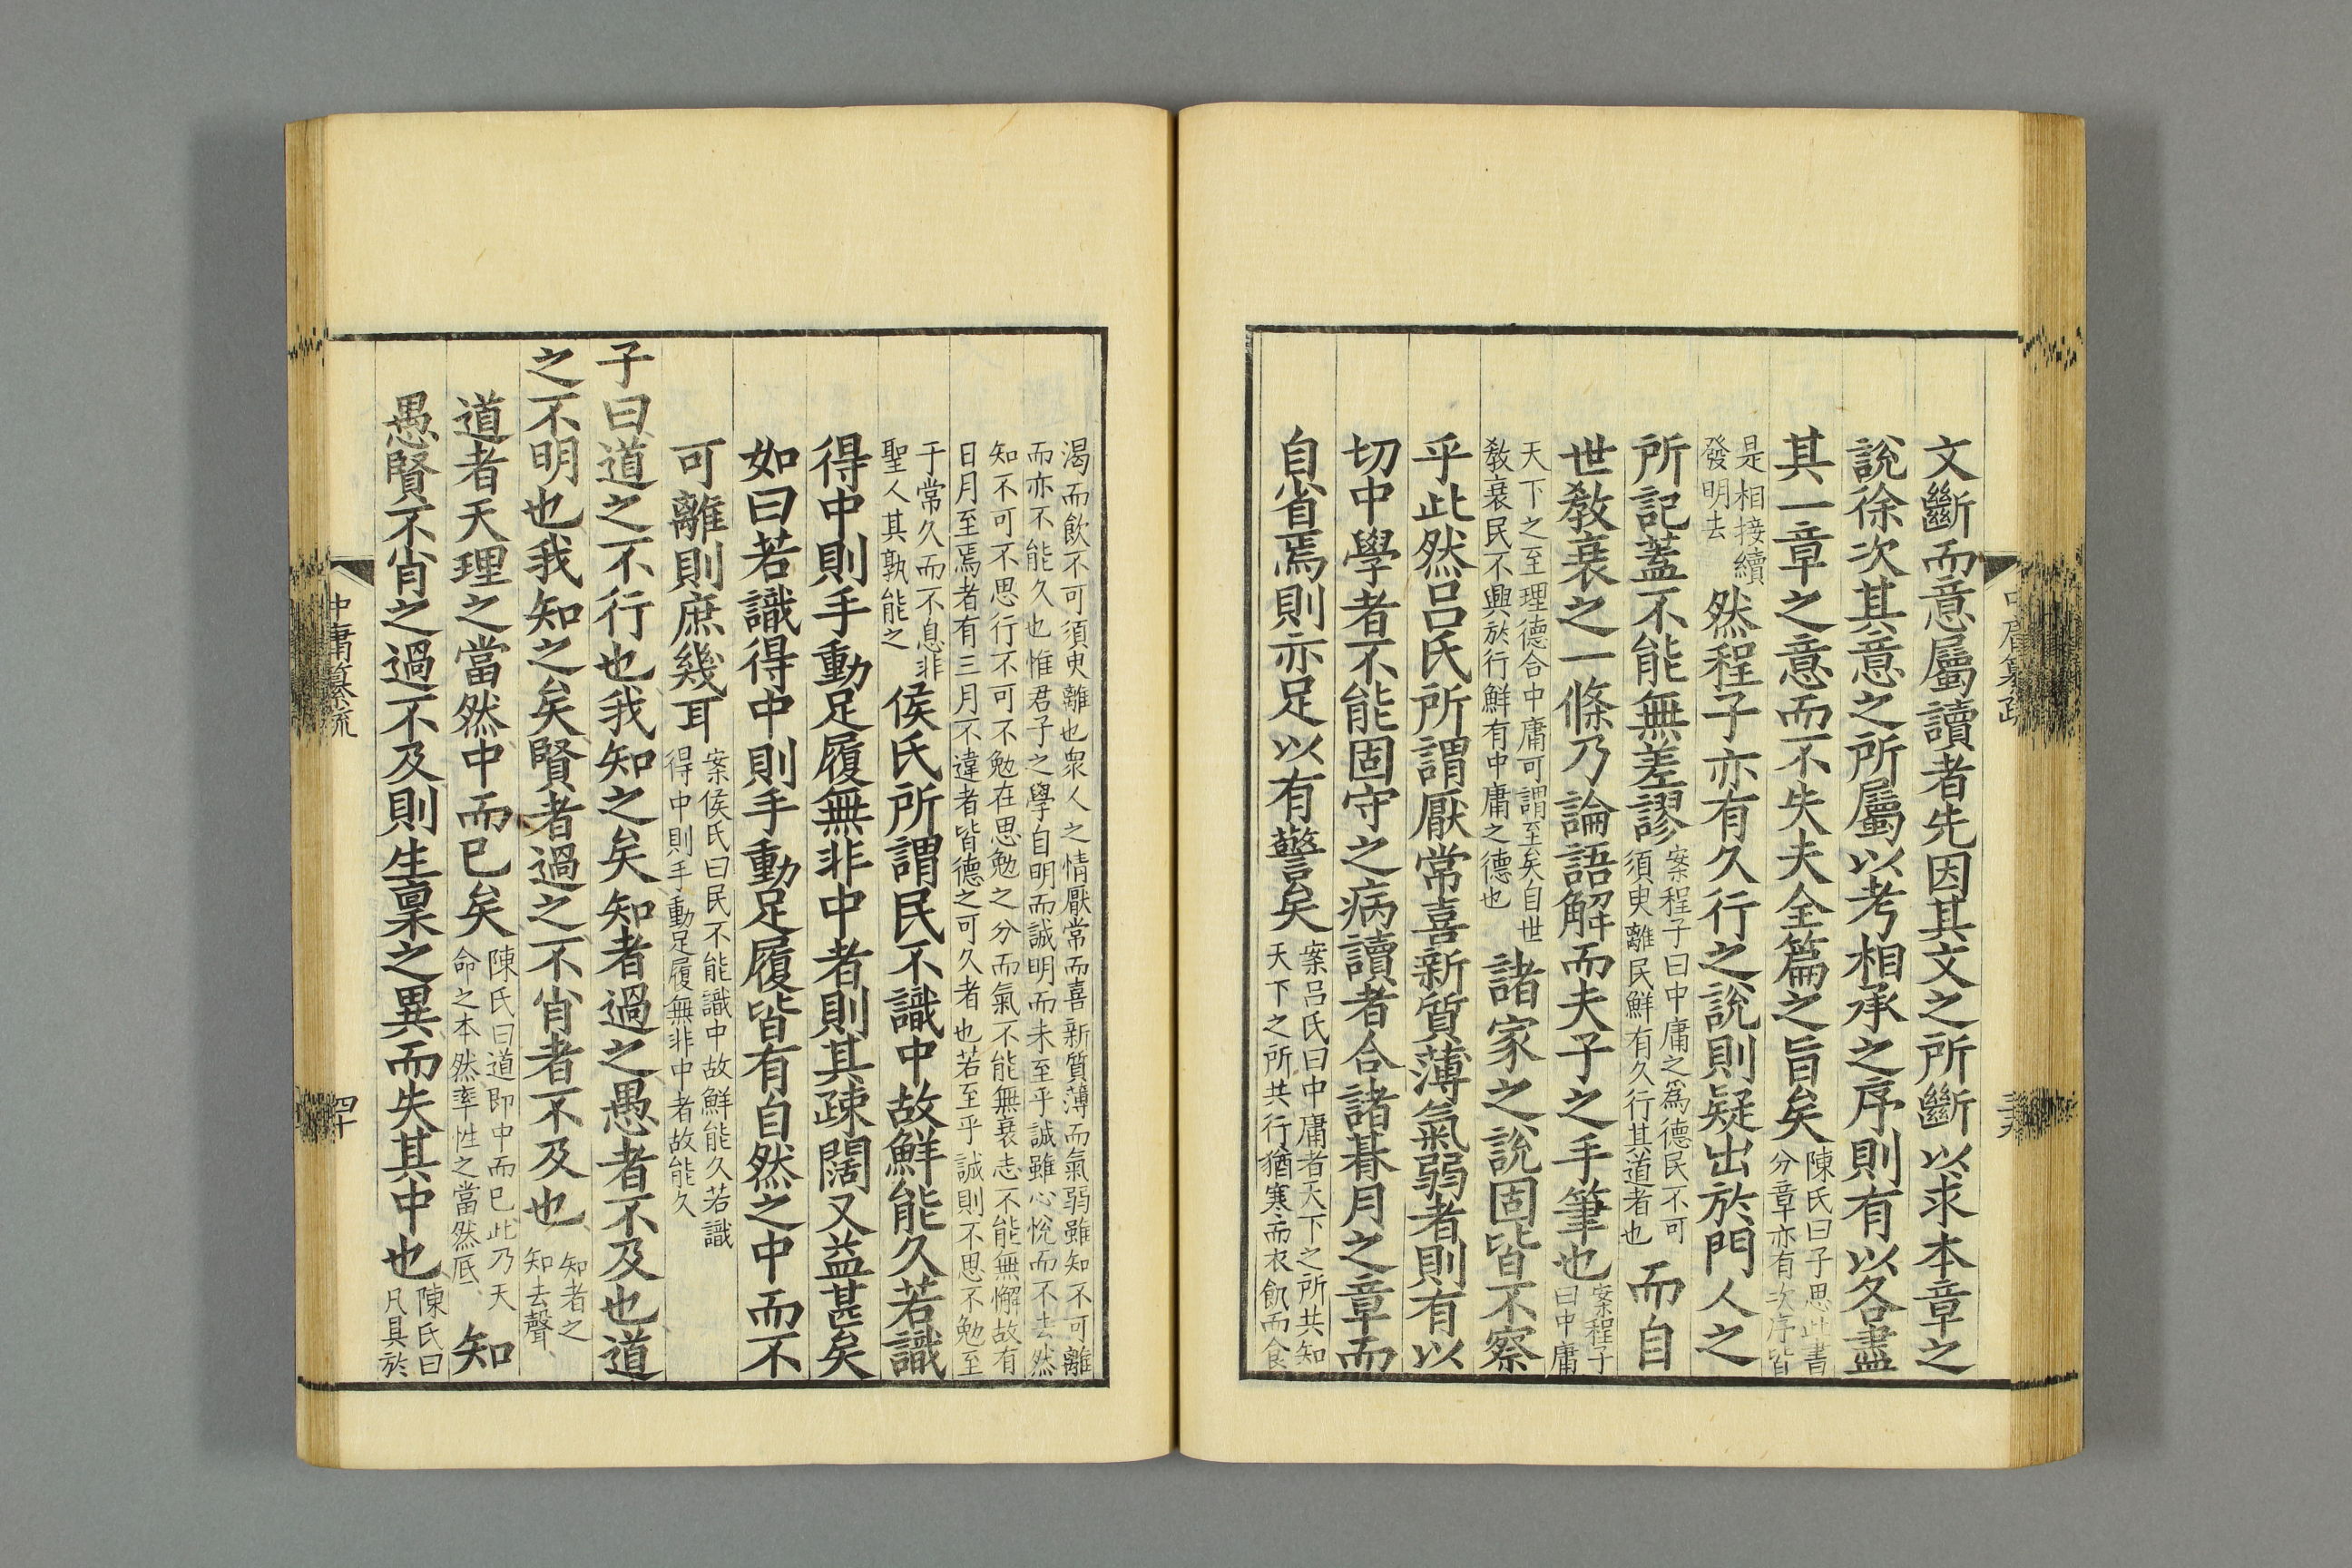 文斷而意屬讀者先因其文之所斷以求本章之
說徐次其意之所屬以考相承之序則有以各盡
其一章之意而不失夫全篇之旨矣陳氏曰子思此書
分章亦有次序皆
是相接續
發明去然程子亦有久行之說則疑出於門人之
所記蓋不能無差謬案程子曰中庸之爲德民不可
須臾離民鮮有久行其道者也而自
世敎衰之一條乃論語解而夫子之手筆也案程子
曰中庸
天下之至理德合中庸可謂至矣自世
敎衰民不興於行鮮有中庸之德也諸家之說固皆不察
乎此然呂氏所謂厭常喜新質薄氣弱者則有以
切中學者不能固守之病讀者合諸朞月之章而
自省焉則亦足以有警矣案呂氏曰中庸者天下之所共知
天下之所共行猶寒而衣飢而食
渴而飮不可須臾離也衆人之情厭常而喜新質薄而氣弱雖知不可離
而亦不能久也惟君子之學自明而誠明而未至乎誠雖心悅而不去然
知不可不思行不可不勉在思勉之分而氣不能無衰志不能無懈故有
日月至焉者有三月不違者皆德之可久者也若至乎誠則不思不勉至
于常久而不息非
聖人其孰能之侯氏所謂民不識中故鮮能久若識
得中則手動足履無非中者則其疎闊又益甚矣
如曰若識得中則手動足履皆有自然之中而不
可離則庶幾耳案侯氏曰民不能識中故鮮能久若識
得中則手動足履無非中者故能久
子曰道之不行也我知之矣知者過之愚者不及也道
之不明也我知之矣賢者過之不肖者不及也知者之
知去聲
道者天理之當然中而已矣陳氏曰道即中而已此乃天
命之本然率性之當然底知
愚賢不肖之過不及則生稟之異而失其中也陳氏曰
凡具於
中庸纂疏
四十
中庸纂疏
三十九